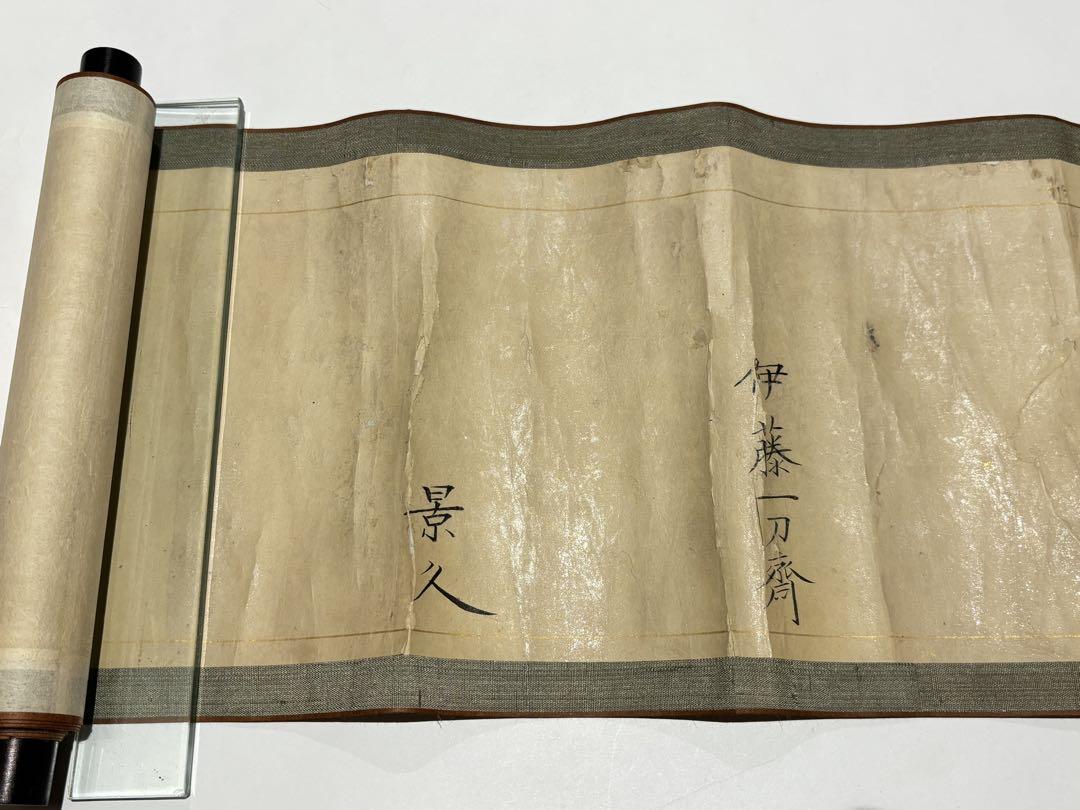 伊藤一刀齋
景久